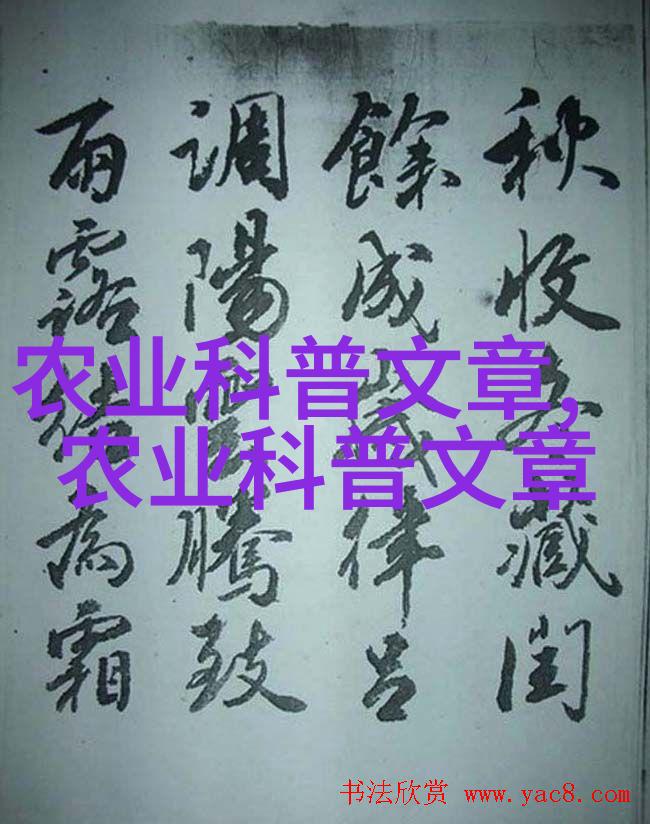 秋收冬藏閏
餘成歲律呂
調陽雲騰致
雨露結為霜
农业科普文章,
农业科普文章
书法欣赏 www.yac8.com